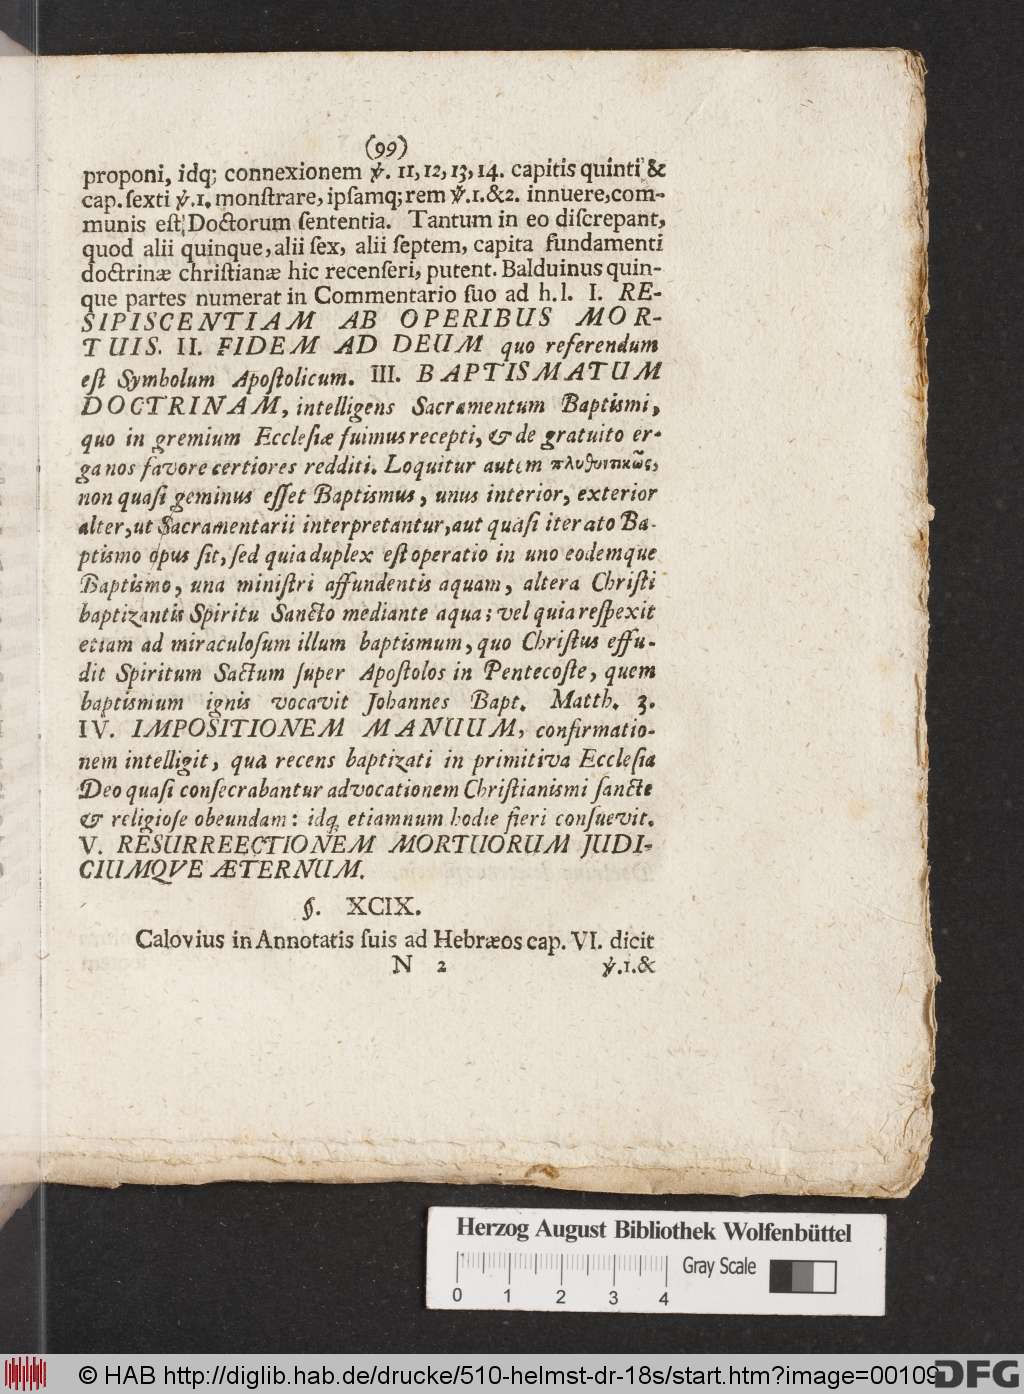 (99)
proponi, idq; connexionem ℣. 11, 12, 13, 14. capitis quinti &
cap. ſexti ℣.1. monſtrare, ipſamq; rem ℣.1.&2. innuere, com-
munis eſt Doctorum ſententia. Tantum in eo diſcrepant,
quod alii quinque, alii ſex, alii ſeptem, capita fundamenti
doctrinæ chriſtianæ hic recenſeri, putent. Balduinus quin-
que partes numerat in Commentario ſuo ad h.l. I. RE-
SIPISCENTIAM AB OPERIBUS MOR-
TUIS. II. FIDEM AD DEUM quo referendum
eſt Symbolum Apoſtolicum. III. BAPTISMATUM
DOCTRINAM, intelligens Sacramentum Baptiſmi,
quo in gremium Eccleſiæ fuimus recepti, & de gratuito er-
ga nos favore certiores redditi. Loquitur autem πληθυντικῶς,
non quaſi geminus eſſet Baptismus, unus interior, exterior
alter, ut Sacramentarii interpretantur, aut quaſi iterato Ba-
ptismo opus ſit, ſed quia duplex eſt operatio in uno eodemque
Baptismo, una miniſtri affundentis aquam, altera Chriſti
baptizantis Spiritu Sancto mediante aqua; vel quia reſpexit
etiam ad miraculoſum illum baptismum, quo Chriſtus effu-
dit Spiritum Sactum ſuper Apoſtolos in Pentecoſte, quem
baptismum ignis vocavit Johannes Bapt. Matth. 3.
IV. IMPOSITIONEM MANUUM, confirmatio-
nem intelligit, qua recens baptizati in primitiva Eccleſia
Deo quaſi conſecrabantur ad vocationem Chriſtianismi ſancte
& religioſe obeundam: idq; etiamnum hodie fieri conſuevit.
V. RESURREECTIONEM MORTUORUM JUDI-
CIUMQVE ÆTERNUM.
§. XCIX.
Calovius in Annotatis ſuis ad Hebræos cap. VI. dicit
N 2 ℣.1.&
Herzog August Bibliothek Wolfenbüttel
Gray Scale
0 1 2 3 4
© HAB http://diglib.hab.de/drucke/510-helmst-dr-18s/start.htm?image=00109
DFG